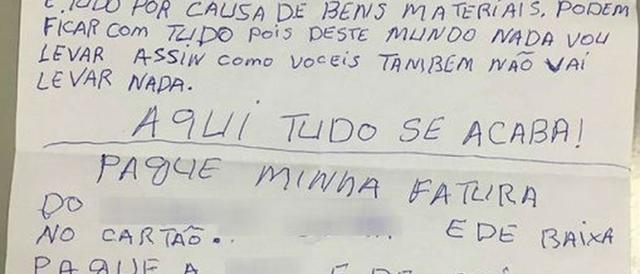 E.TUDO POR CAUSA DE BENS MATERIAIS. PODEM
FICAR COM TUDO POIS DESTE MUNDO NADA VOU
LEVAR ASSIN COMO VOCEIS TAMBEM NÃO VAI
LEVAR NADA.
AQUI TUDO SE ACABA!
PAGUE MINHA FATURA
DO
NO CARTÃO.. E DE BAIXA
PAGUE A E DE